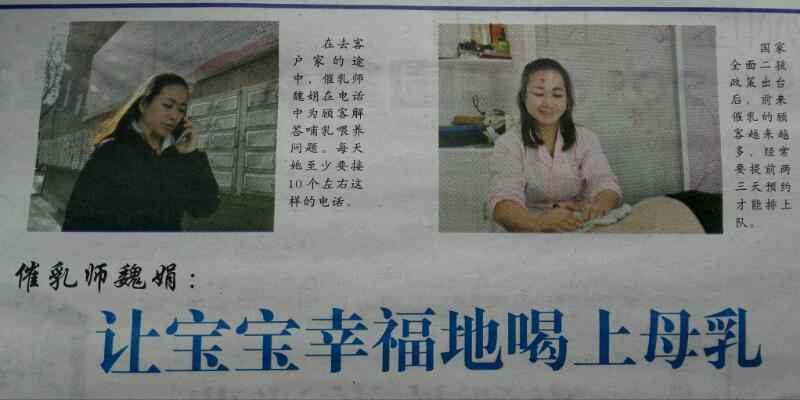 在去客
户家的途
中，催乳师
魏娟在电话
中为顾客解
答哺乳喂养
问题。每天
她至少要接
10个左右这
样的电话。
国家
全面二孩
政策出台
后，前来
催乳的顾
客越来越
多，经常
要提前两
三天预约
才能排上
队。
催乳师魏娟：
让宝宝幸福地喝上母乳